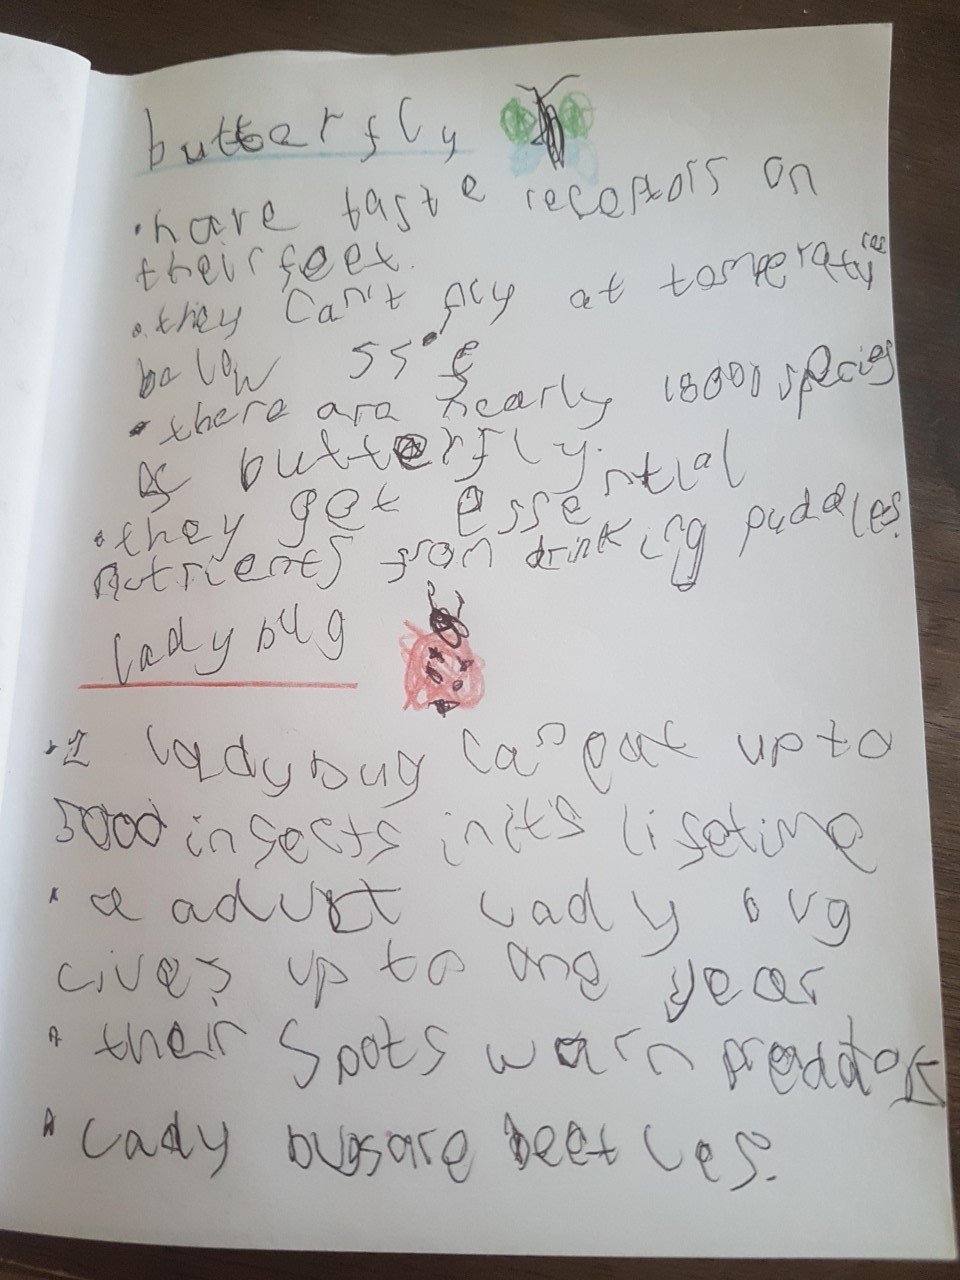 butterfly
• have taste receptors on
their feet.
• they can't fly at temperatures
below 55°F
• there are nearly 18000 species
of butterfly.
• they get essential
nutrients from drinking puddles.
ladybug
• 1 ladybug can eat up to
5000 insects in it's lifetime
• a adult ladybug
lives up to one year
• their spots warn predators
• Lady bugs are beetles.